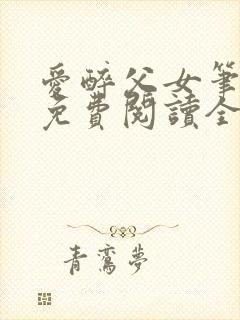 愛醉父女筆
免費閱讀全
青鸞夢